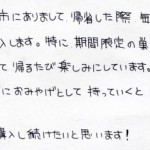 市にありまして、帰省した際、毎
入します。特に、期間限定の巣
て帰るたび楽しみにしています。
におみやげとして持っていくと
購入し続けたいと思います!